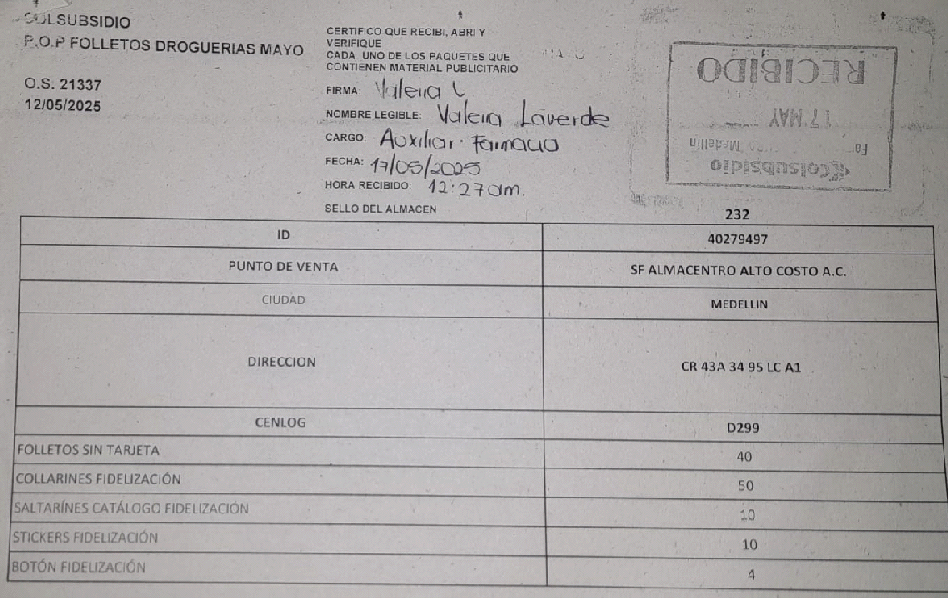 COLSUBSIDIO
P.O.P FOLLETOS DROGUERIAS MAYO
O.S. 21337
12/05/2025
CERTIFICO QUE RECIBI, ABRI Y
VERIFIQUE
CADA UNO DE LOS PAQUETES QUE
CONTIENEN MATERIAL PUBLICITARIO
FIRMA: Valeria L
NOMBRE LEGIBLE: Valeria Laverde
CARGO Auxiliar Farmacia
FECHA: 17/05/2025
HORA RECIBIDO 12:27am.
SELLO DEL ALMACEN
RECIBIDO
17 MAY
Medellín
Colsubsidio
232
ID 40279497
PUNTO DE VENTA SF ALMACENTRO ALTO COSTO A.C.
CIUDAD MEDELLIN
DIRECCION CR 43A 34 95 LC A1
CENLOG D299
FOLLETOS SIN TARJETA 40
COLLARINES FIDELIZACIÓN 50
SALTARÍNES CATÁLOGO FIDELIZACIÓN
STICKERS FIDELIZACIÓN 10
BOTÓN FIDELIZACIÓN 4